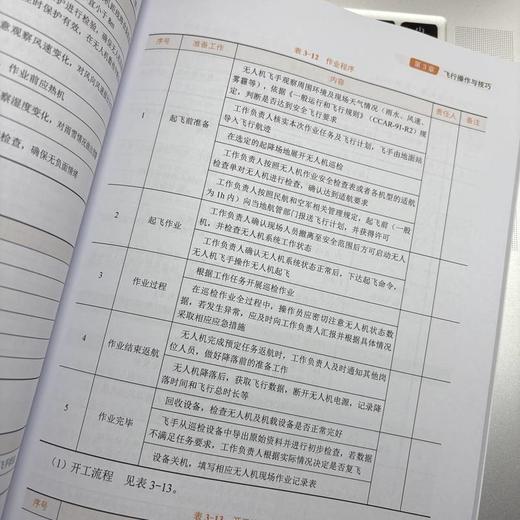 第3章 飞行操作与技巧
表 3-12 作业程序
序号 准备工作 内容 责任人 备注
1 起飞前准备
无人机飞手观察周围环境及现场天气情况(雨水、风速、
雾霾等),依据《一般运行和飞行规则》(CCAR-91-R2)规
定,判断是否达到安全飞行要求
工作负责人核实本次作业任务及飞行计划,飞手由地面站
导入飞行航迹
在选定的起降场地展开无人机巡检
工作负责人按照无人机作业安全检查表或者各机型的适航
检查单对无人机进行检查,确认达到适航要求
2 起飞作业
工作负责人按照民航和空军相关管理规定,起飞前(一般
为 1h 内)向当地航管部门报送飞行计划,并获得许可
工作负责人确认现场人员撤离至安全范围后方可启动无人
机,并检查无人机系统工作状态
工作负责人确认无人机系统状态正常后,下达起飞命令,
无人机飞手操作无人机起飞
3 作业过程
根据工作任务开展巡检作业
在巡检作业全过程中,操作员应密切注意无人机状态数
据,若发生异常,应及时向工作负责人汇报并根据具体情况
采取相应应急措施
4 作业结束返航
无人机完成预定任务返航时,工作负责人及时通知其他岗
位人员,做好降落前的准备工作
5 作业完毕
无人机降落后,获取飞行数据,断开无人机电源,记录降
落时间和飞行总时长等
回收设备,检查无人机及机载设备是否正常完好
飞手从巡检设备中导出原始资料并进行初步检查,若数据
不满足任务要求,工作负责人根据实际情况决定是否复飞
设备关机,填写相应无人机现场作业记录表
(1)开工流程 见表 3-13。
表 3-13
序号
意观察风速变化,对风向风
作业前应热机
察湿度变化,对雨雪情况
检查,确保无负面情绪